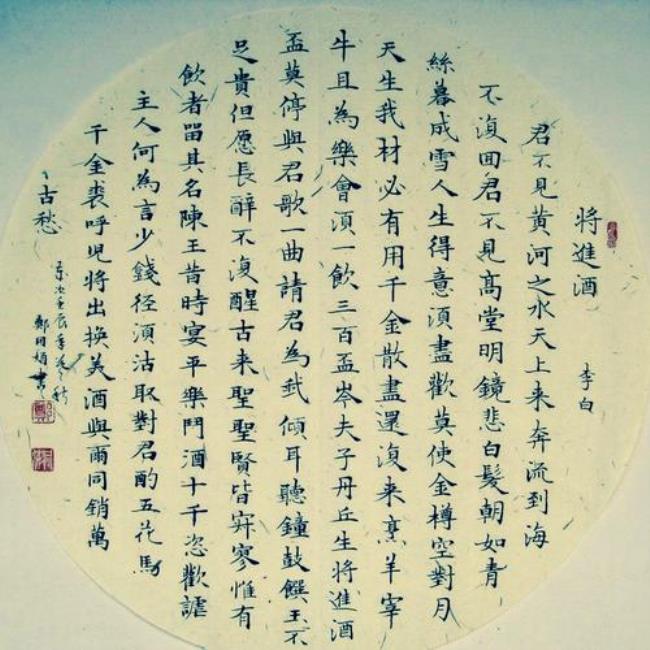 將進酒
李白
君不見黃河之水天上来奔流到海
不復回君不見高堂明鏡悲白髮朝如青
絲暮成雪人生得意須盡歡莫使金樽空對月
天生我材必有用千金散盡還復来烹羊宰
牛且為樂會須一飲三百盃岑夫子丹丘生將進酒
盃莫停與君歌一曲請君為我傾耳聽鐘鼓饌玉不
足貴但愿長醉不復醒古来聖聖賢皆寂寥惟有
飲者留其名陳王昔時宴平樂鬥酒十千恣歡謔
主人何為言少錢径須沽取對君酌五花馬
千金裘呼児將出換美酒與爾同銷萬
古愁
歲次壬辰年秋
鄭書